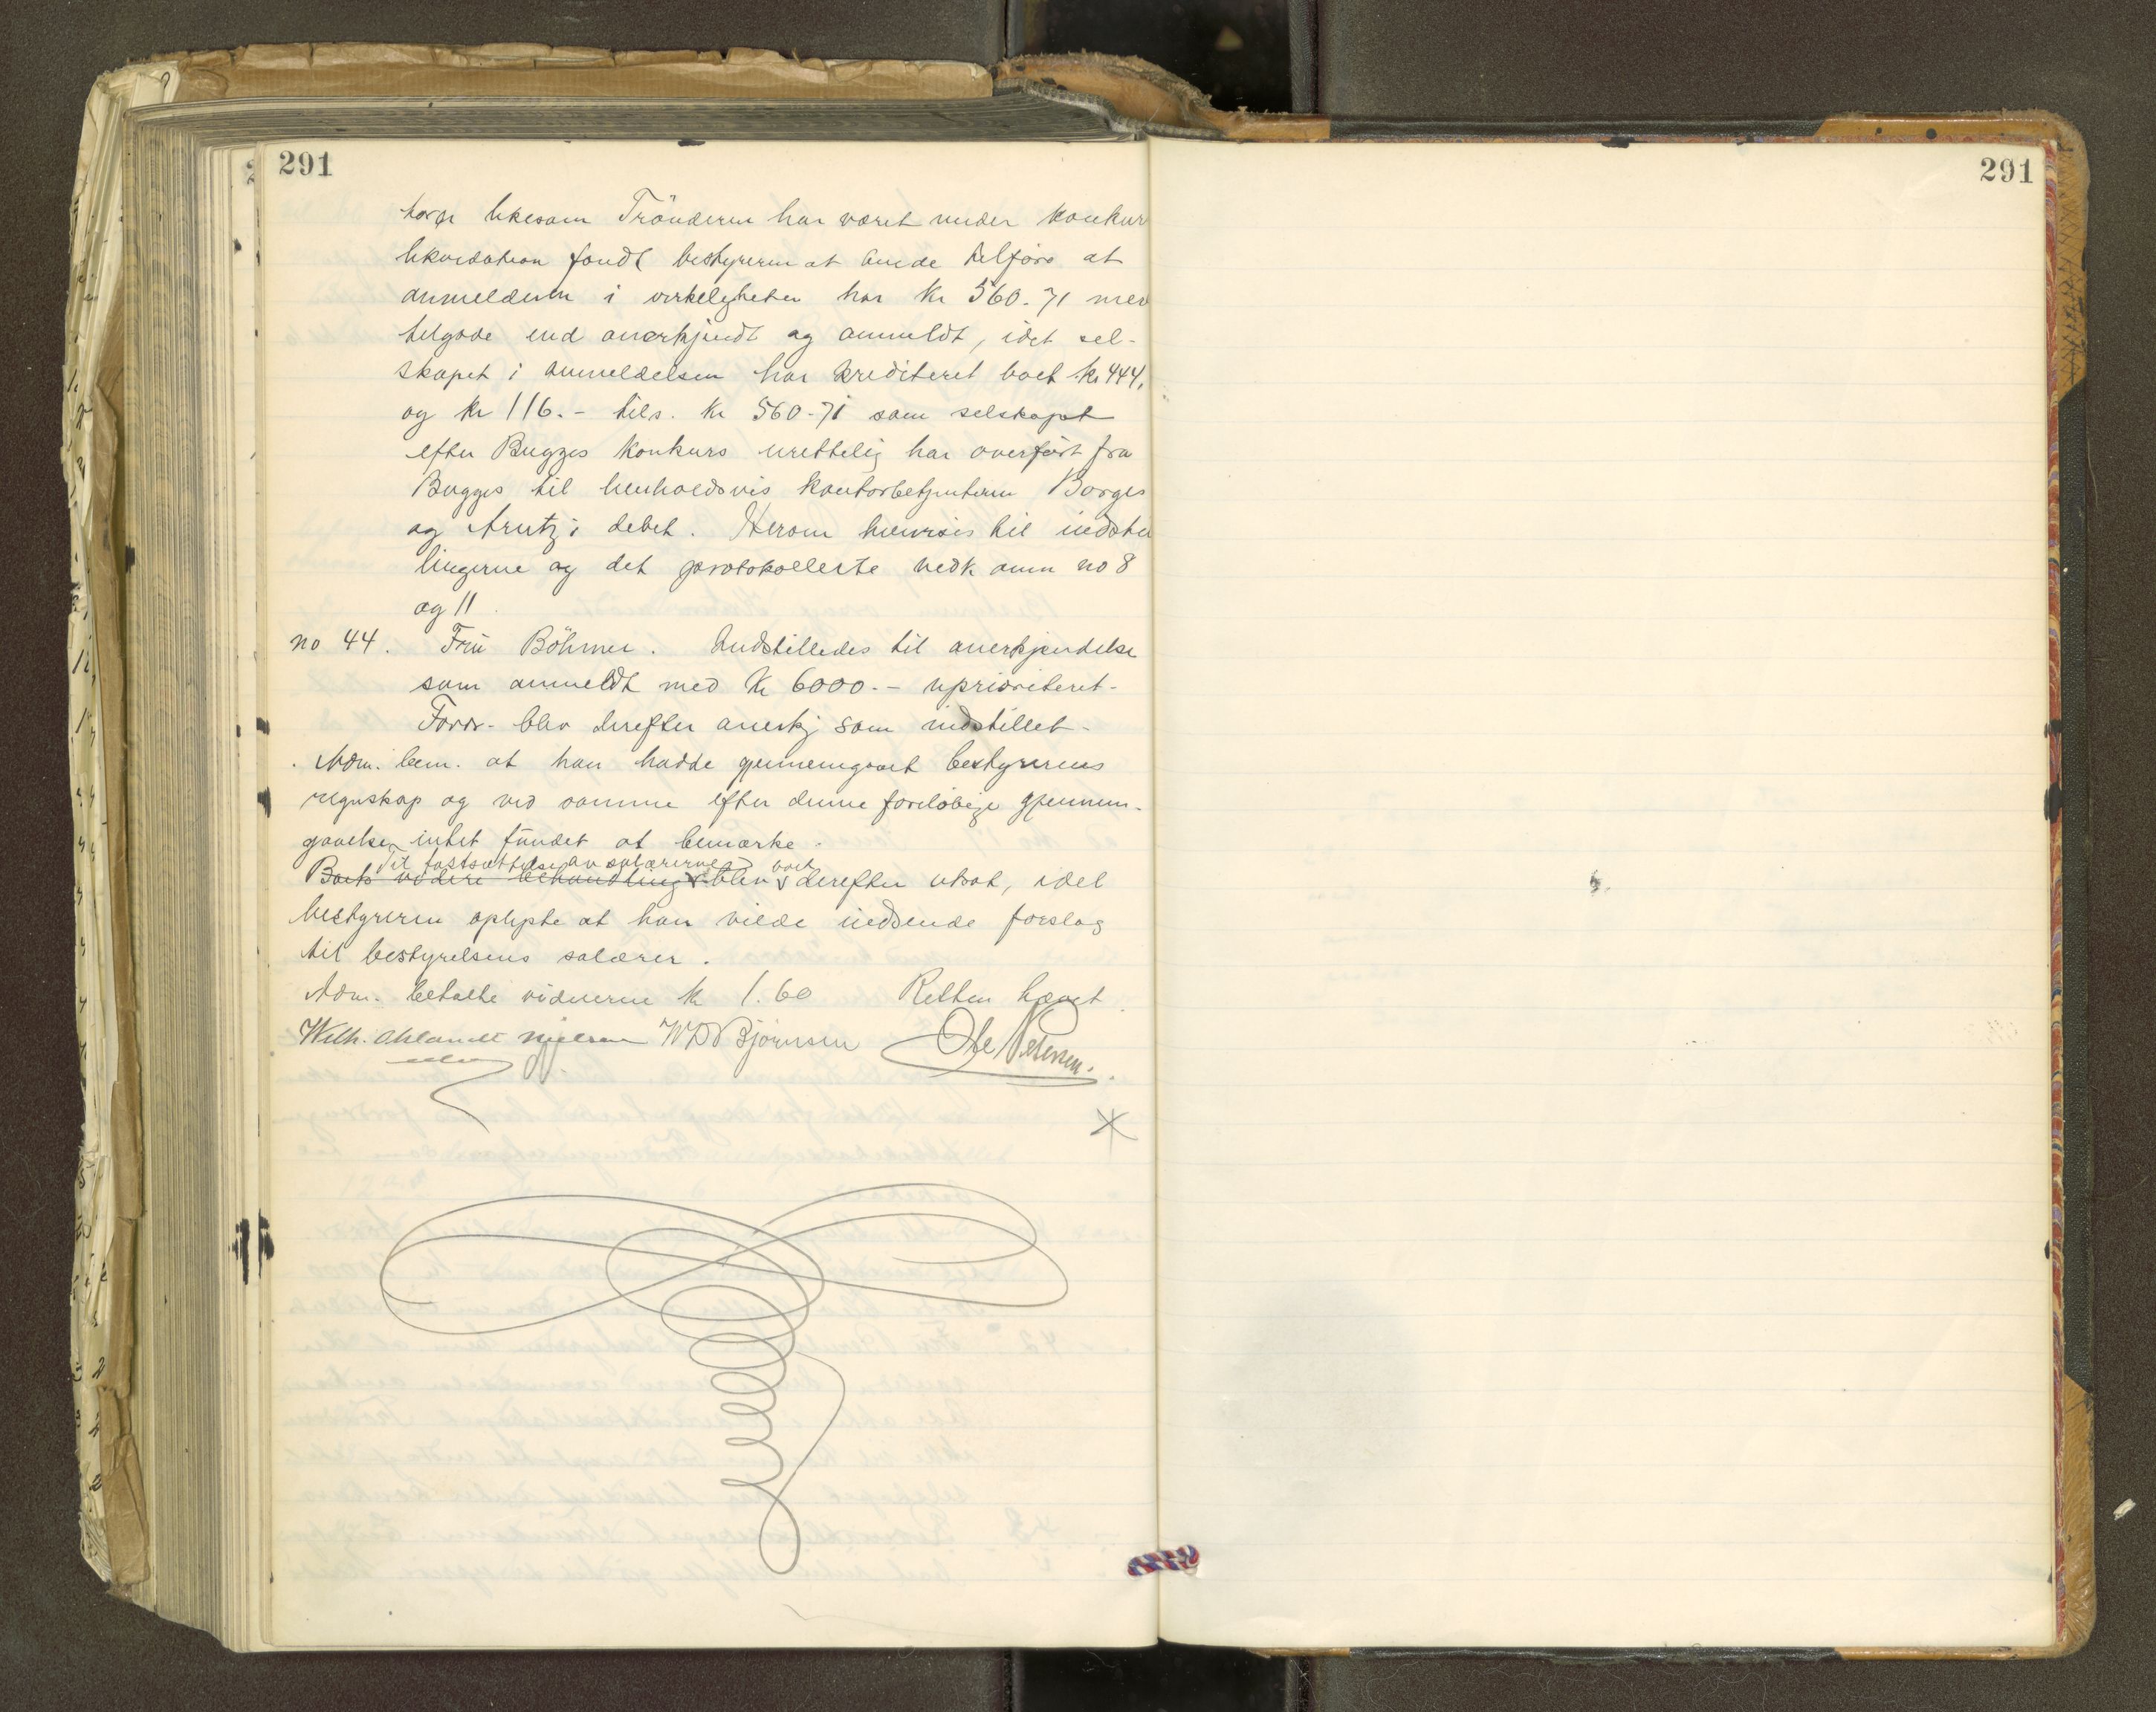 291
291
torg likesom Trönderen har været under konkur
likvidation fandt bestyreren at burde tilføre at
anmelderen i virkeligheten har kr 560.71 mer
tilgode end anerkjendt og anmeldt, idet sel-
skapet i anmeldelsen har krediteret boet kr 444,
og kr 116.- tils. kr 560-71 som selskapet
efter Bugges konkurs urettelig har overført fra
Bugges til henholdsvis kontorbetjenteren Borges
og Arntz's debet. Herom henvises til indstil
lingerne og det protokollerte vedk anm no 8
og 11.
no 44. Frü Böhmer. Indstilledes til anerkjendelse
som anmeldt med Kr 6000.- uprioriteret-
Fordr- blev derefter anerkj som indstillet-
Adm. bem. at han hadde gjennemgaaet bestyrerens
regnskap og ved samme efter denne foreløbige gjennem-
gaaelse intet fundet at bemærke.
Til fastsættelse av salærerne boet
Boets videre behandling blev derefter utsat, idet
bestyreren oplyste at han vilde indsende forslag
til bestyrelsens salærer.
Adm. betalte vidnerne kr 1.60 Retten hævet.
Wilh. Nielsen W D Bjørnsen Ole Petersen.